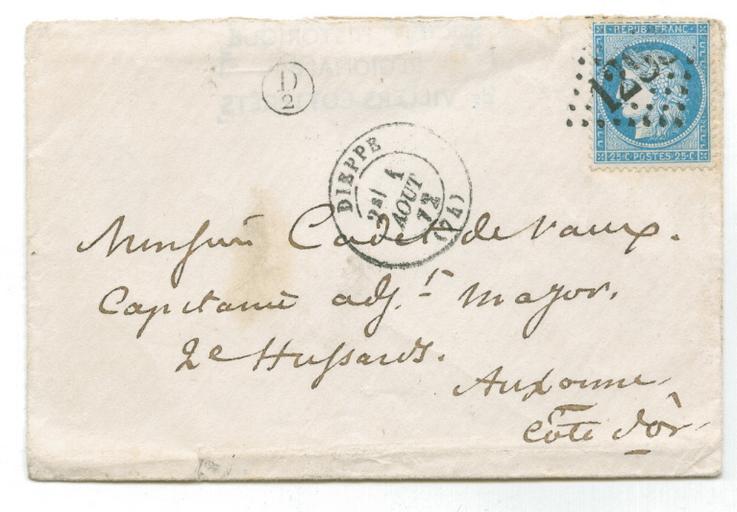 REPUB FRANC
25 C POSTES 25 C
D
2
DIEPPE
2E/ 4
AOUT
72
(74)
Monsieur Cadet de Vaux.
Capitaine adj.t Major.
2e Hussards.
Auxonne
Côte d'or